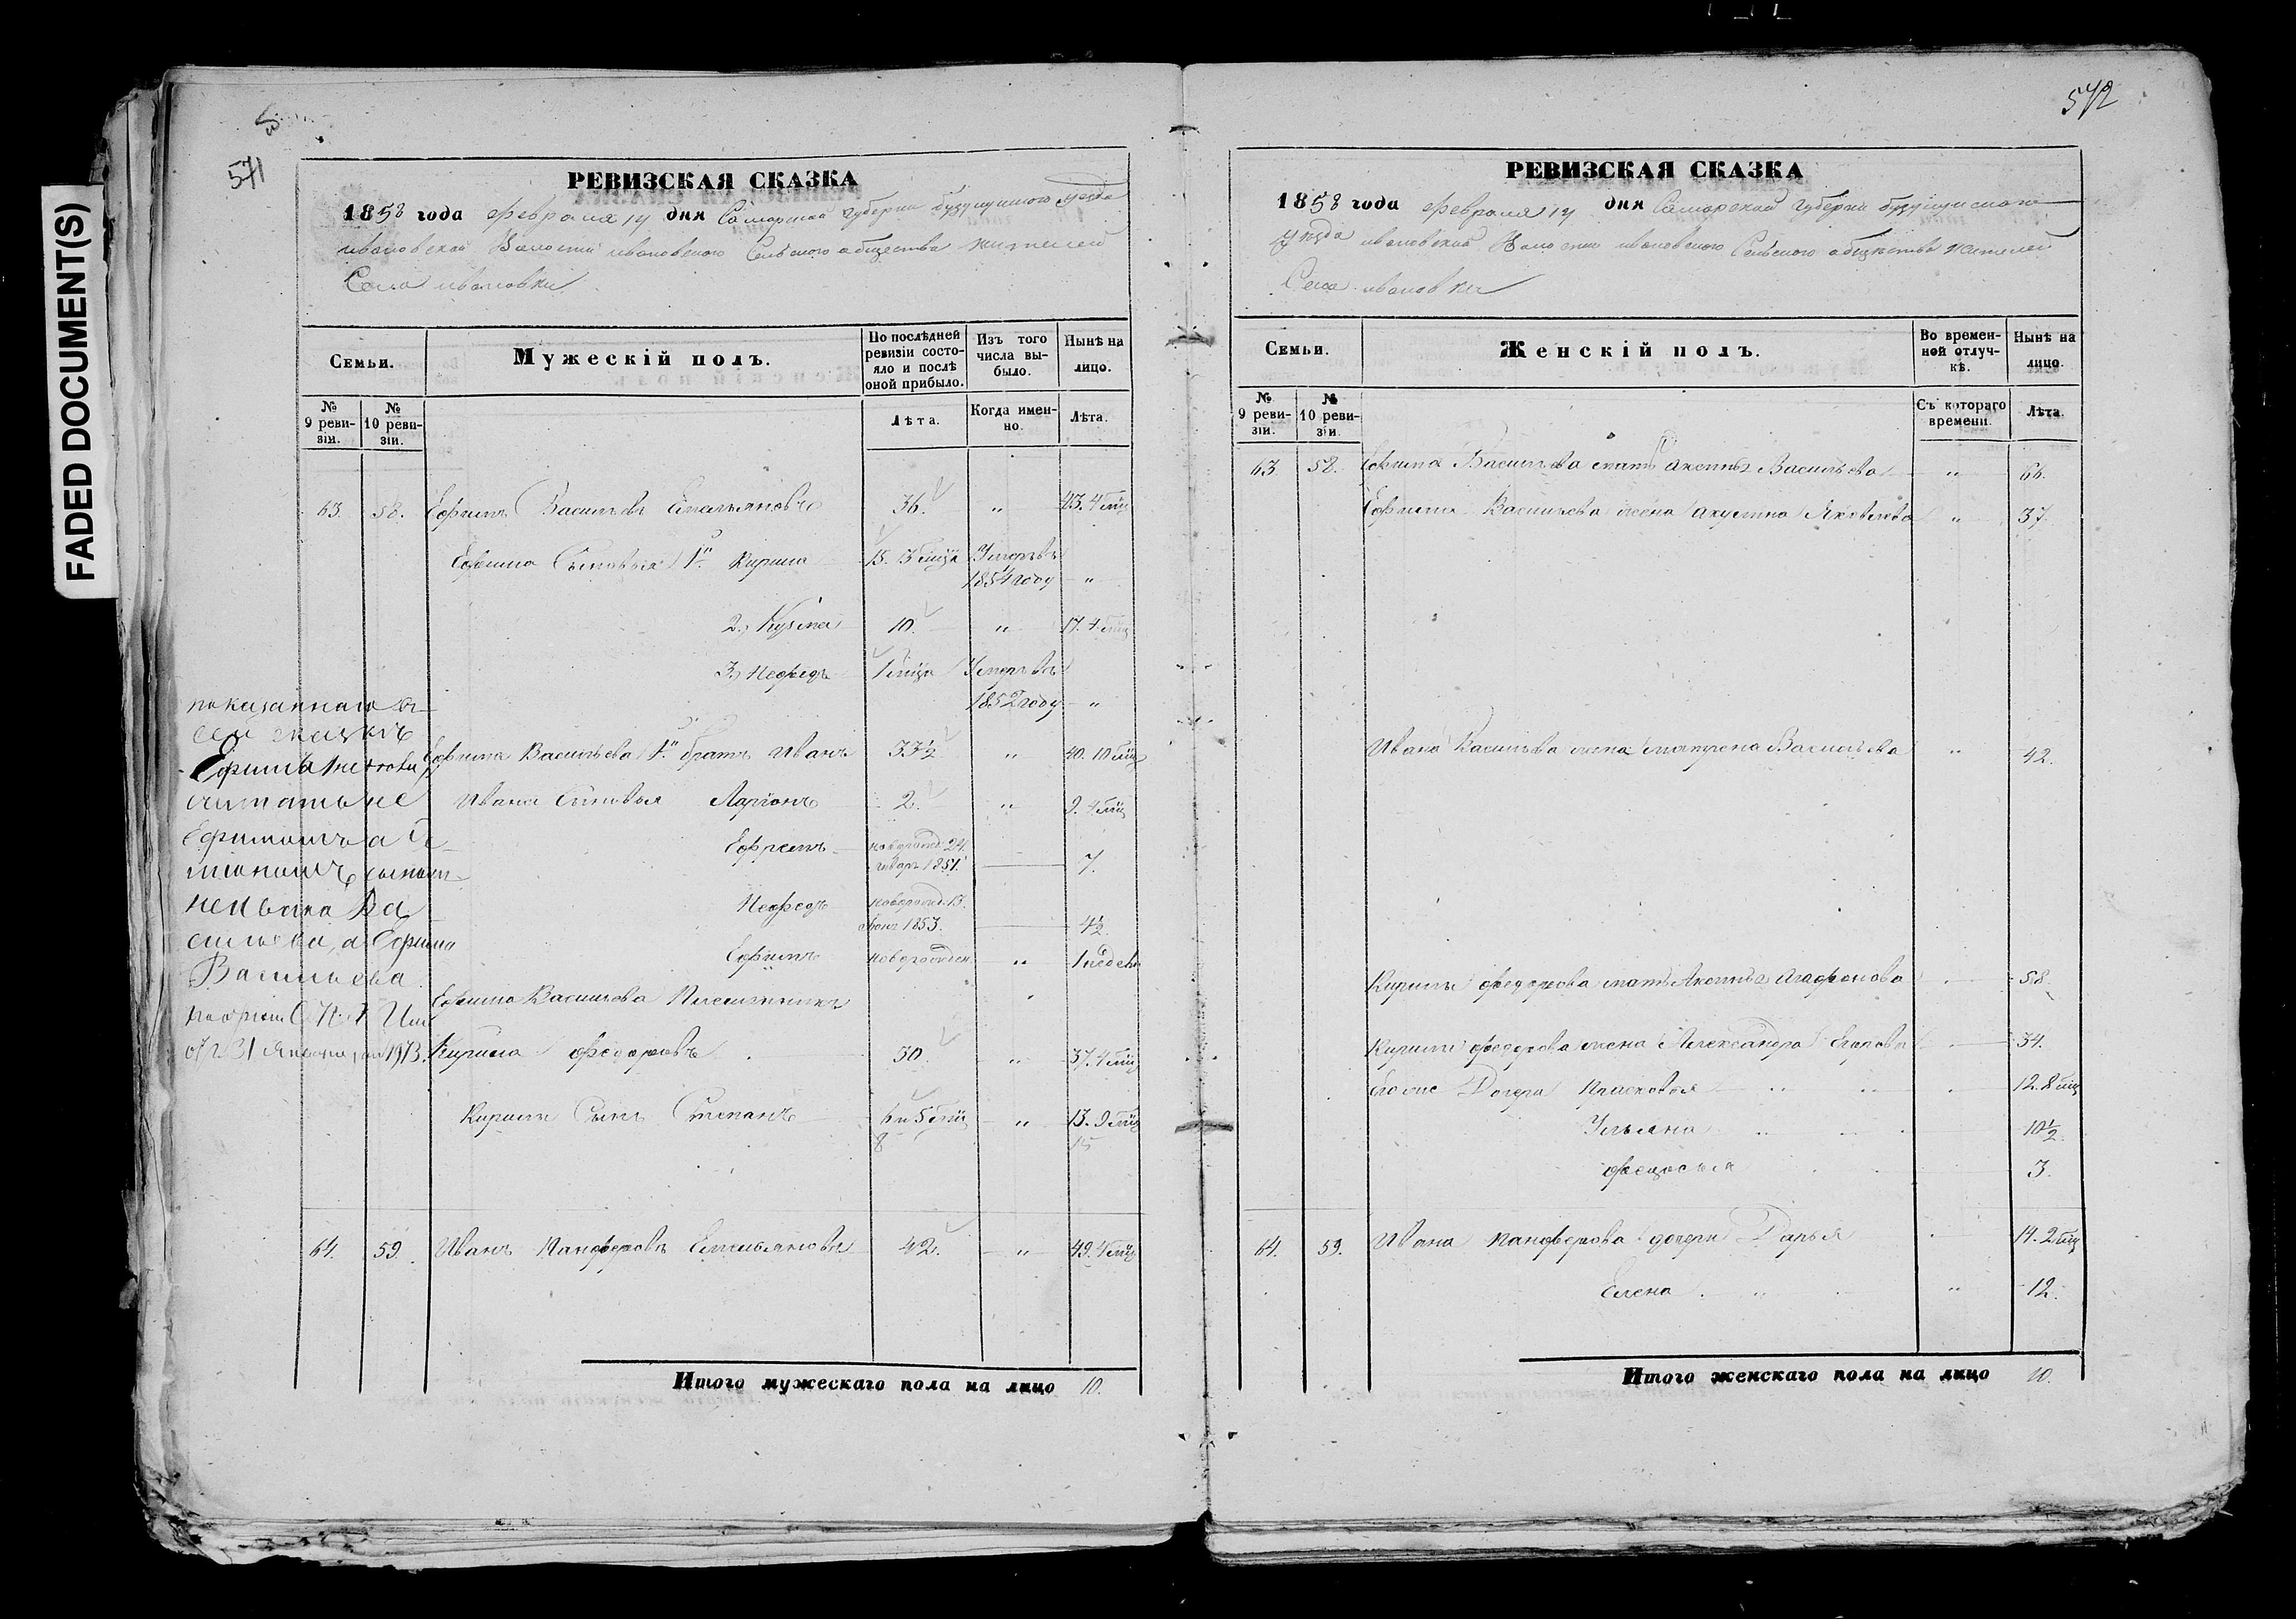 FADED DOCUMENT(S)
571
РЕВИЗСКАЯ СКАЗКА
1858 года февраля 14 дня Самарской губерни бузулуцкого уезда
ивановской Волости ивановского Сельского общества жителей
Села ивановки
Семьи.
Мужескій полъ.
По послѣдней ревизіи состояло и послѣ оной прибыло.
Изъ того числа выбыло.
Нынѣ на лицо.
№ 9 ревизіи.
№ 10 ревизіи.
Лѣта.
Когда именно.
Лѣта.
63. 58. Ефимъ Васильевъ Емельяновъ 36. " 43. 4 мц
Ефима Сыновья 1й Кирила 15. 3 мца Умеръ въ
1854 году "
2., Кузма 10. " 17. 4 мц
3., Нефедъ 1 мца Умеръ въ
1852 году "
Ефима Васильева 1й братъ Иванъ 33½ " 40. 10 мц
Ивана Сыновья Ларионъ 2. " 9. 4 мц
Ефремъ новорожд. 24.
генвар. 1851. 7.
Нефедъ новорожд. 13.
1853. 4½
Ефимъ новорожден. " 1 недели
Ефима Васильева Племянникъ
Кирила федоровъ 30. " 37. 4 мц
Кирилы Сынъ Степанъ 6 и 5 мц " 13. 9 мц
8 15
64. 59. Иванъ Панферовъ Емельяновъ 42. " 49. 4 мц
Итого мужескаго пола на лицо 10.
показаннаго въ
сей сказкѣ
Ефима
считать не
Ефимомъ а
сыномъ
Ивана Ва
сильева, а Ефима
Васильева
31 Января 1913.
572
РЕВИЗСКАЯ СКАЗКА
1858 года февраля 14 дня Самарской губерни бузулуцкого
уезда ивановской Волости ивановского Сельского общества жителей
Села ивановки
Семьи.
Женскій полъ.
Во временной отлучкѣ.
Нынѣ на лицо.
№ 9 ревизіи.
№ 10 ревизіи.
Съ котораго времени.
Лѣта.
63 58. Ефима Васильева мать Аксинья Васильева " 66.
Ефима Васильева жена акулина Яковлева " 37.
Ивана Васильева жена матрена Васильева " 42.
Кирилы федорова мать Аксинья агафонова 58.
Кирилы федорова жена Александра Егорова 34.
его же Дочери Прасковья 12. 8 мц
Ульяна 10½
федосья 3.
64. 59. Ивана панферова дочери Дарья 14. 2 мц
Елена " 12.
Итого женскаго пола на лицо 10.